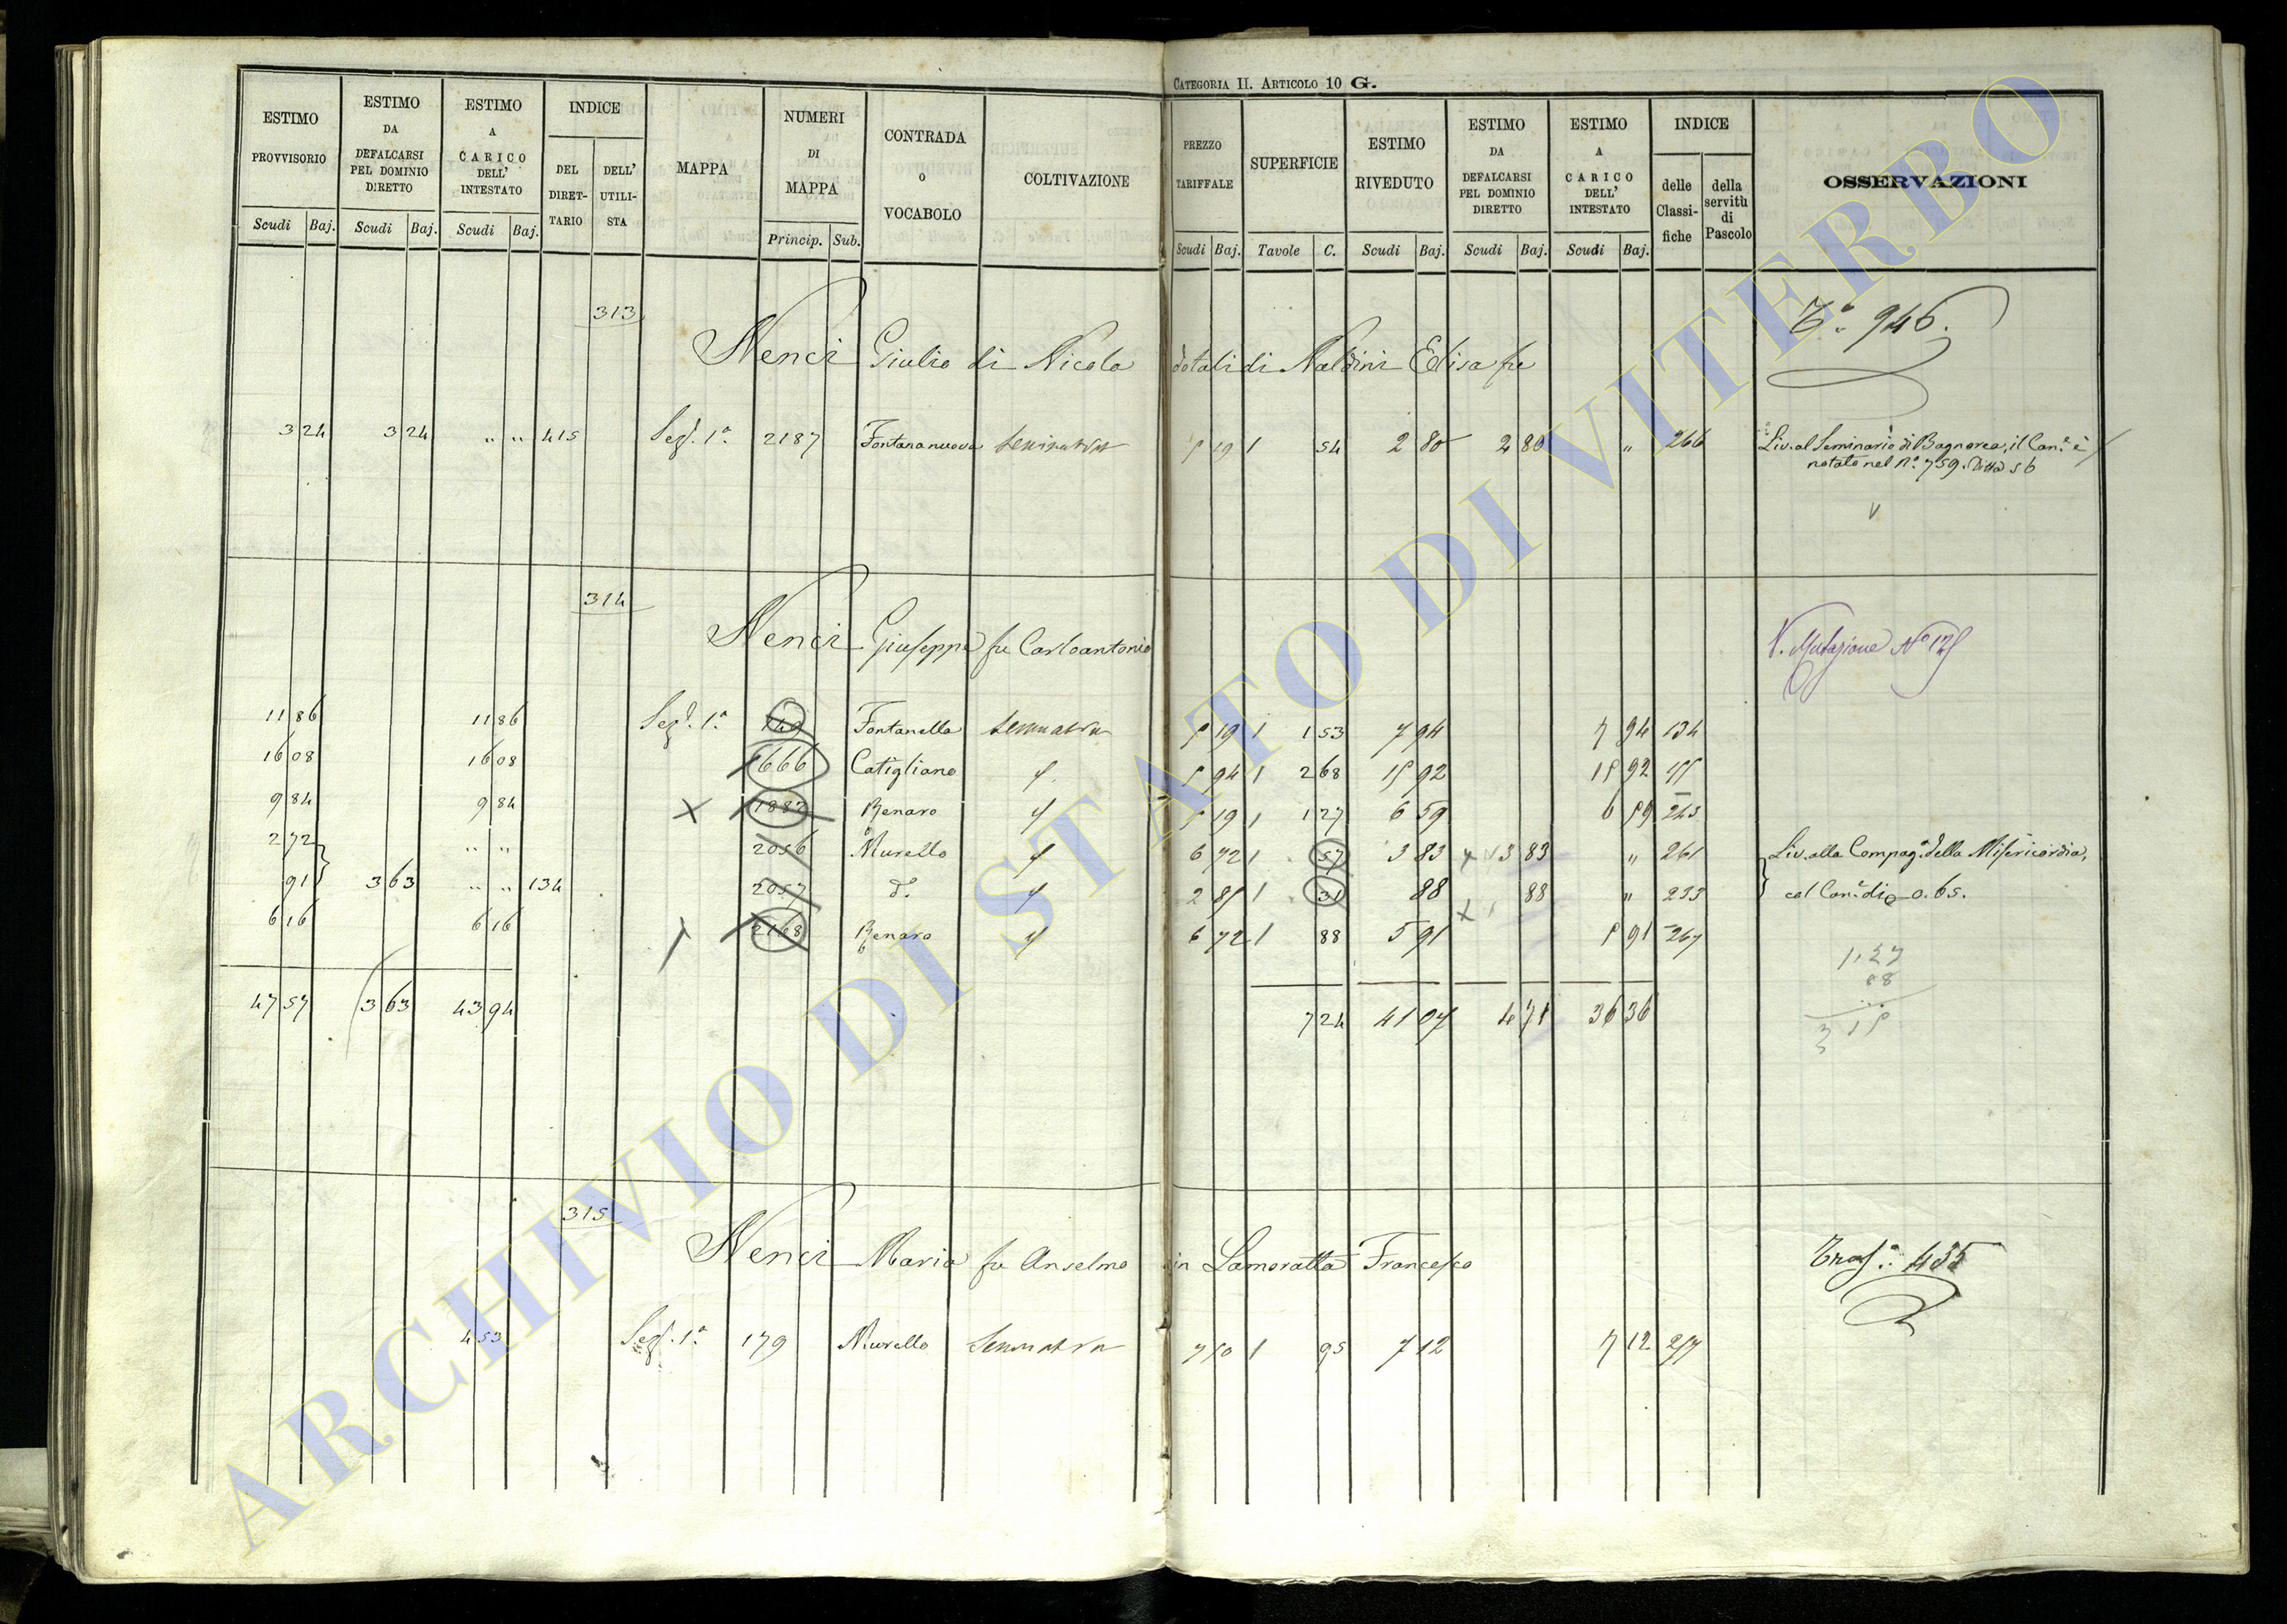 CATEGORIA II. ARTICOLO 10 G.
ESTIMO PROVVISORIO
ESTIMO DA DEFALCARSI PEL DOMINIO DIRETTO
ESTIMO A CARICO DELL' INTESTATO
INDICE
DEL DIRET- TARIO
DELL' UTILI- STA
MAPPA
NUMERI DI MAPPA
CONTRADA o VOCABOLO
COLTIVAZIONE
PREZZO TARIFFALE
SUPERFICIE
ESTIMO RIVEDUTO
ESTIMO DA DEFALCARSI PEL DOMINIO DIRETTO
ESTIMO A CARICO DELL' INTESTATO
INDICE
delle Classi- fiche
della servitù di Pascolo
OSSERVAZIONI
Scudi Baj. Scudi Baj. Scudi Baj. Princip. Sub. Scudi Baj. Tavole C. Scudi Baj. Scudi Baj. Scudi Baj.
313
946.
Nenci Giulio di Nicola dotali di Naldini Elisa fu
3 24 3 24 " " 415 Sezª. 1ª. 2187 Fontananuova Seminativo 5 19 1 54 2 80 2 80 " 266 Liv. al Seminario di Bagnorea, il Can.e è
notato nel Nº. 759. Ditta 56
V
314
Nenci Giuseppe fu Carloantonio
V. Mutazione Nº 125
11 86 11 86 Sezª. 1ª. 749 Fontanella Seminativo 5 19 1 1 53 7 94 7 94 134
16 08 16 08 1666 Catigliano 5 94 1 2 68 15 92 15 92 155
9 84 9 84 X 1882 Renaro 5 19 1 1 27 6 59 6 59 243
2 72 " " 2056 Murello 6 72 1 57 3 83 3 83 " 261 Liv. alla Compagª. della Misericordia,
91 3 63 " " 134 2057 dº. 2 85 1 31 88 88 " 233 col Can.e di 0.65.
6 16 6 16 2168 Renaro 6 72 1 88 5 91 5 91 267
1,27
88
3 15
47 57 3 63 43 94 7 24 41 07 4 71 36 36
315
Nenci Maria fu Anselmo in Lamoratta Francesco
Trasº. 435
4 53 Sezª. 1ª. 179 Murello Seminativo 7 50 1 95 7 12 7 12 257
ARCHIVIO DI STATO DI VITERBO